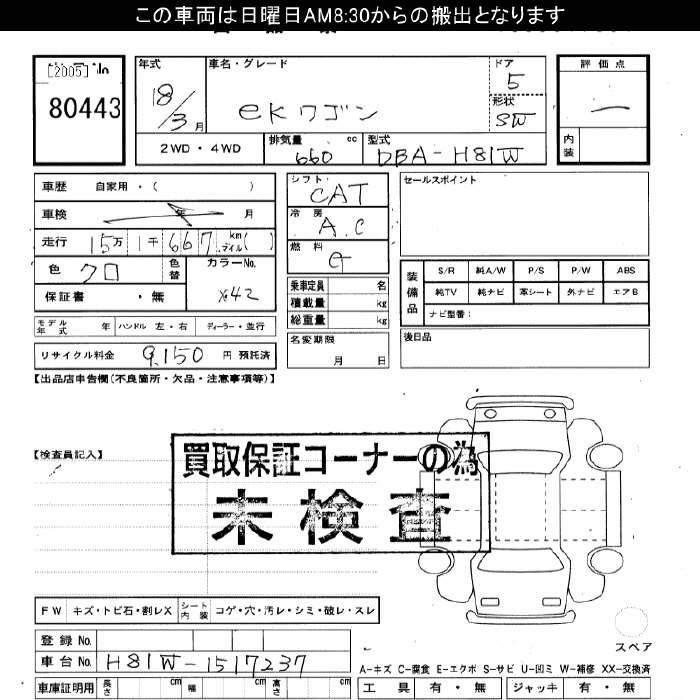 この車両は日曜日AM8:30からの搬出となります
[2005] No
80443
年式
車名・グレード
ドア
評価点
18/3 月
ekワゴン
5
形状
SW
2WD・4WD
排気量 cc
型式
660
DBA-H81W
内装
車歴 自家用・( )
シフト
CAT
セールスポイント
車検 年 月
冷房
A.C
走行 15万 1千 667 km マイル( )
燃料
G
色 クロ
色替
カラーNo.
X42
保証書 ・無
乗車定員 名
積載量 kg
総重量 kg
装備品
S/R 純A/W P/S P/W ABS
純TV 純ナビ 革シート 外ナビ エアB
ナビ型番:
モデル年式 年 ハンドル 左・右 ディーラー・並行
名変期限
月 日
後日品
リサイクル料金 9,150 円 預託済
【出品店申告欄(不良箇所・欠品・注意事項等)】
【検査員記入】
買取保証コーナーの為
未検査
FW キズ・トビ石・割レX
シート内装 コゲ・穴・汚レ・シミ・破レ・スレ
スペア
登録No.
車台No. H81W-1517237
A-キズ C-腐食 E-エクボ S-サビ U-凹ミ W-補修 XX-交換済
車庫証明用 長さ cm 幅 cm 高さ cm
工具 有・無 ジャッキ 有・無